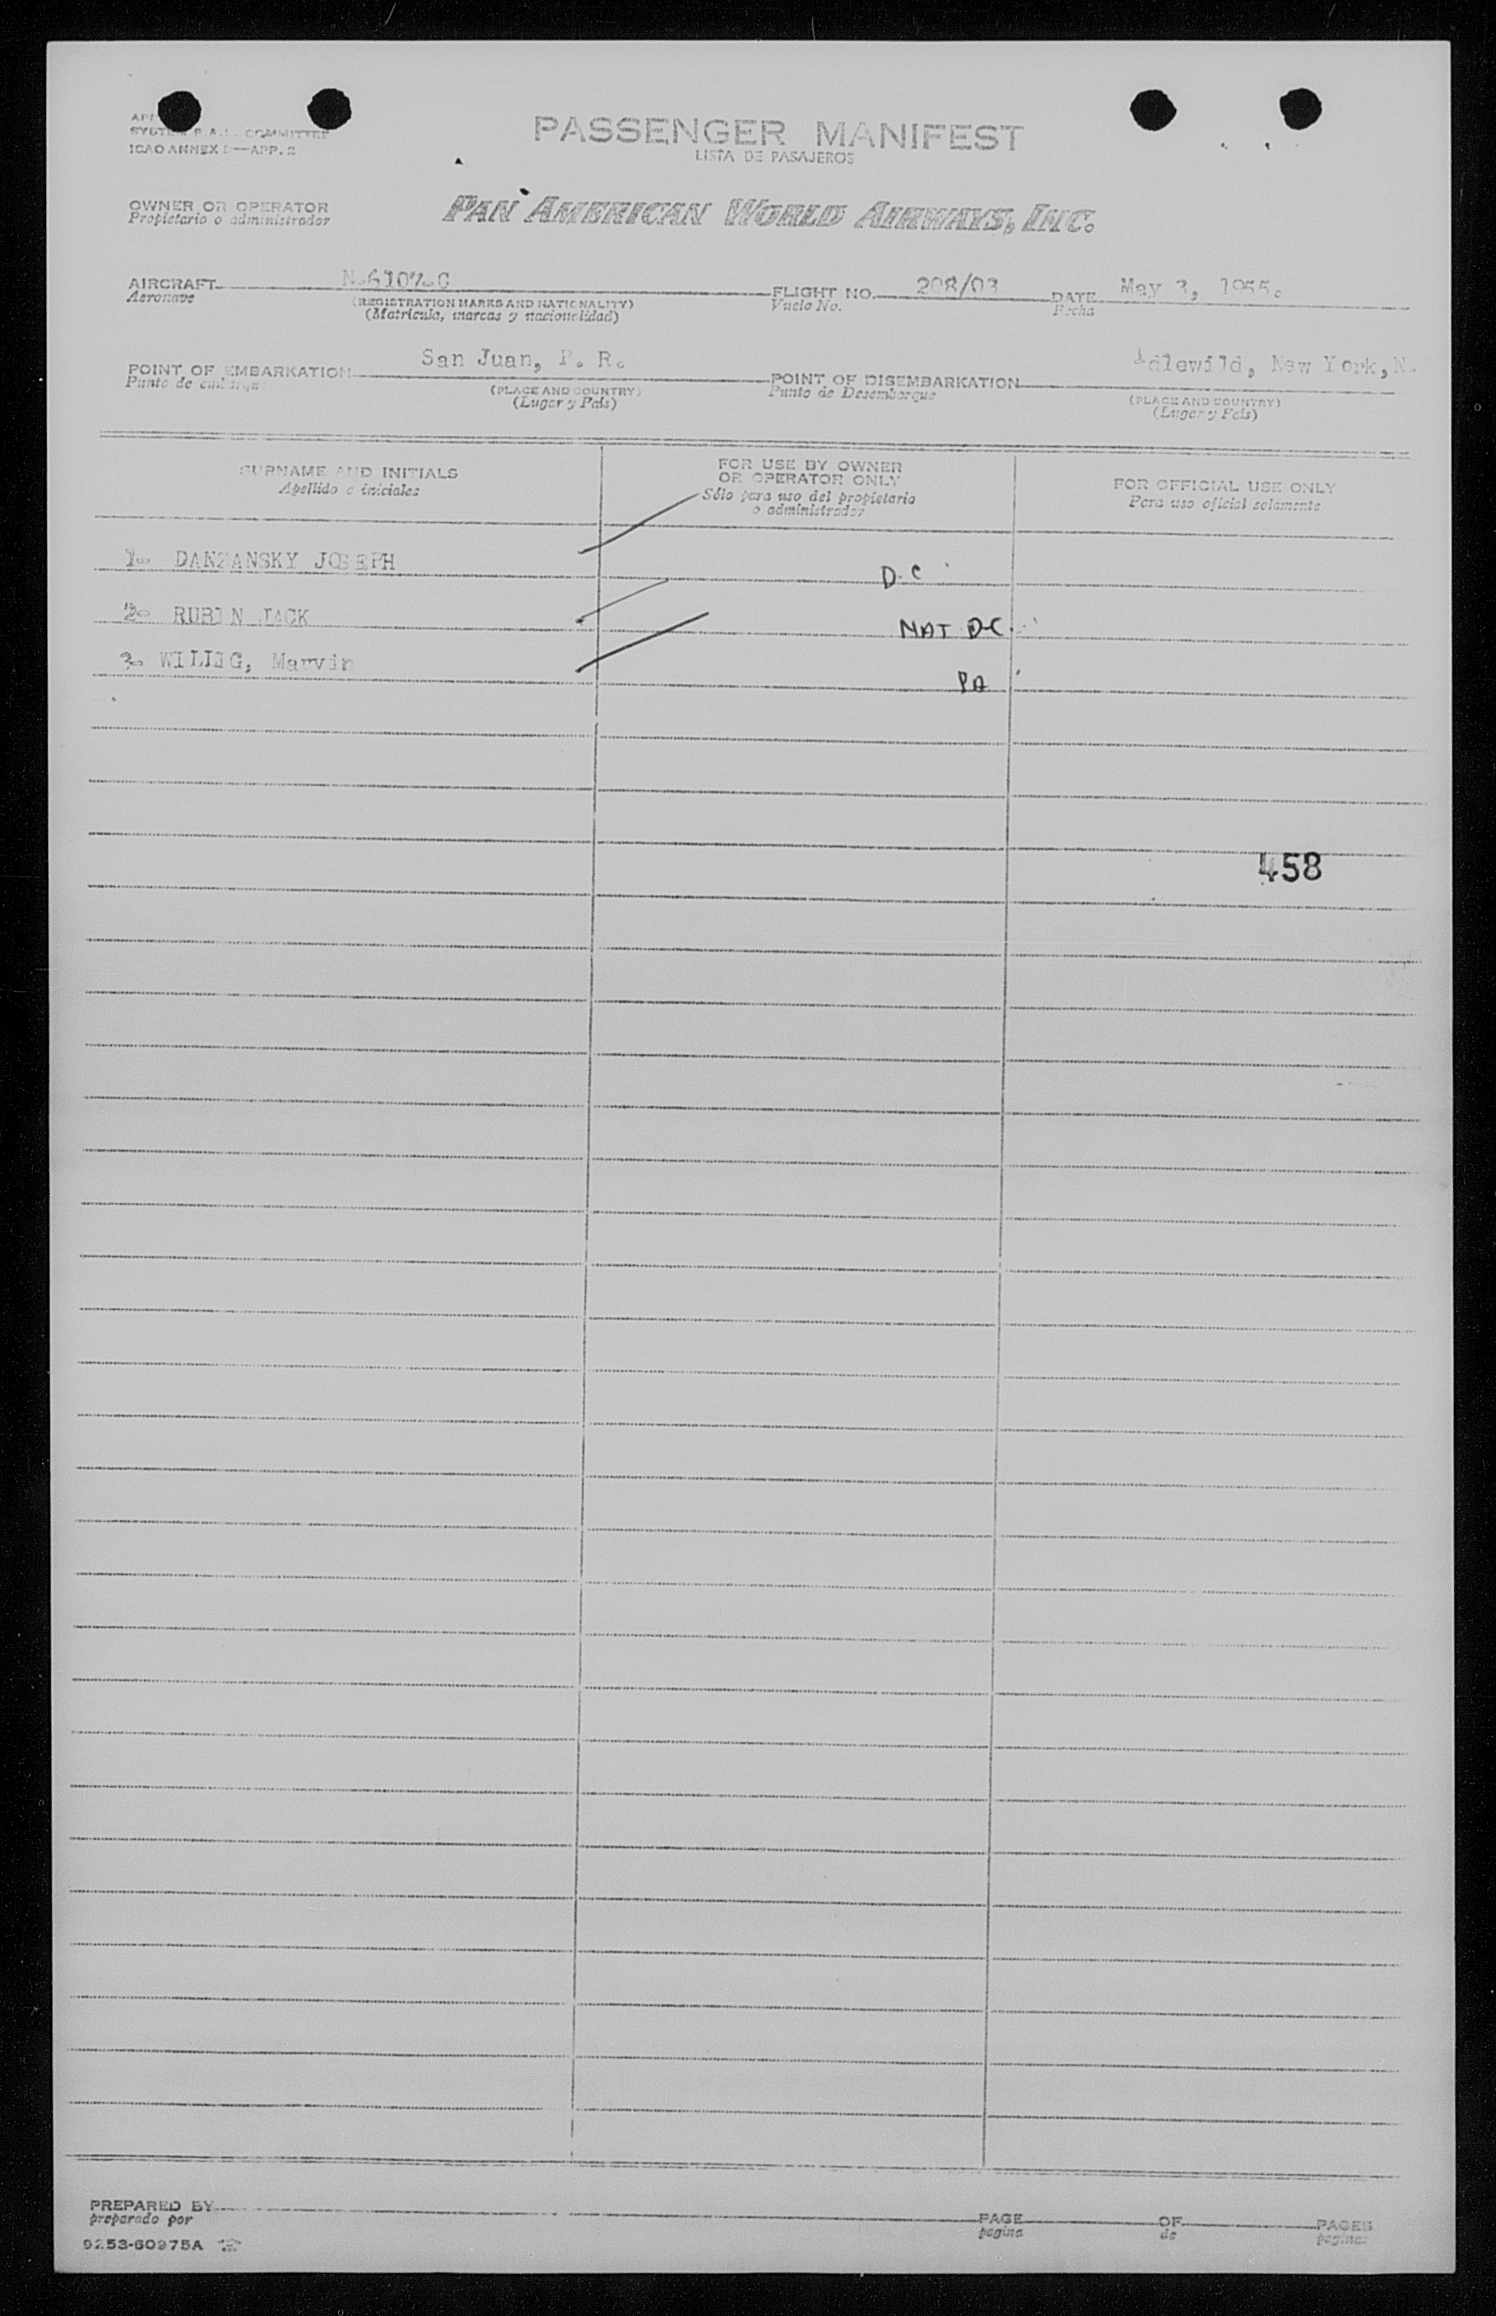 SYSTEM F.A.L. COMMITTEE
ICAO ANNEX 9—APP. 2
PASSENGER MANIFEST
LISTA DE PASAJEROS
OWNER OR OPERATOR
Propietario o administrador
PAN AMERICAN WORLD AIRWAYS, INC.
AIRCRAFT
Aeronave
(REGISTRATION MARKS AND NATIONALITY)
(Matricula, marcas y nacionalidad)
FLIGHT NO. 208/03
Vuelo No.
DATE May 3, 1955.
Fecha
POINT OF EMBARKATION San Juan, P. R.
Punto de embarque
(PLACE AND COUNTRY)
(Lugar y País)
POINT OF DISEMBARKATION Idlewild, New York, N.
Punto de Desembarque
(PLACE AND COUNTRY)
(Lugar y País)
SURNAME AND INITIALS
Apellido e iniciales
FOR USE BY OWNER
OR OPERATOR ONLY
Sólo para uso del propietario
o administrador
FOR OFFICIAL USE ONLY
Para uso oficial solamente
1. DANZANSKY JOSEPH D.C
2. RUBIN JACK NAT D.C.
3. Marvin PA
458
PREPARED BY
preparado por
PAGE
pagina
OF
de
PAGES
paginas
9253-60975A